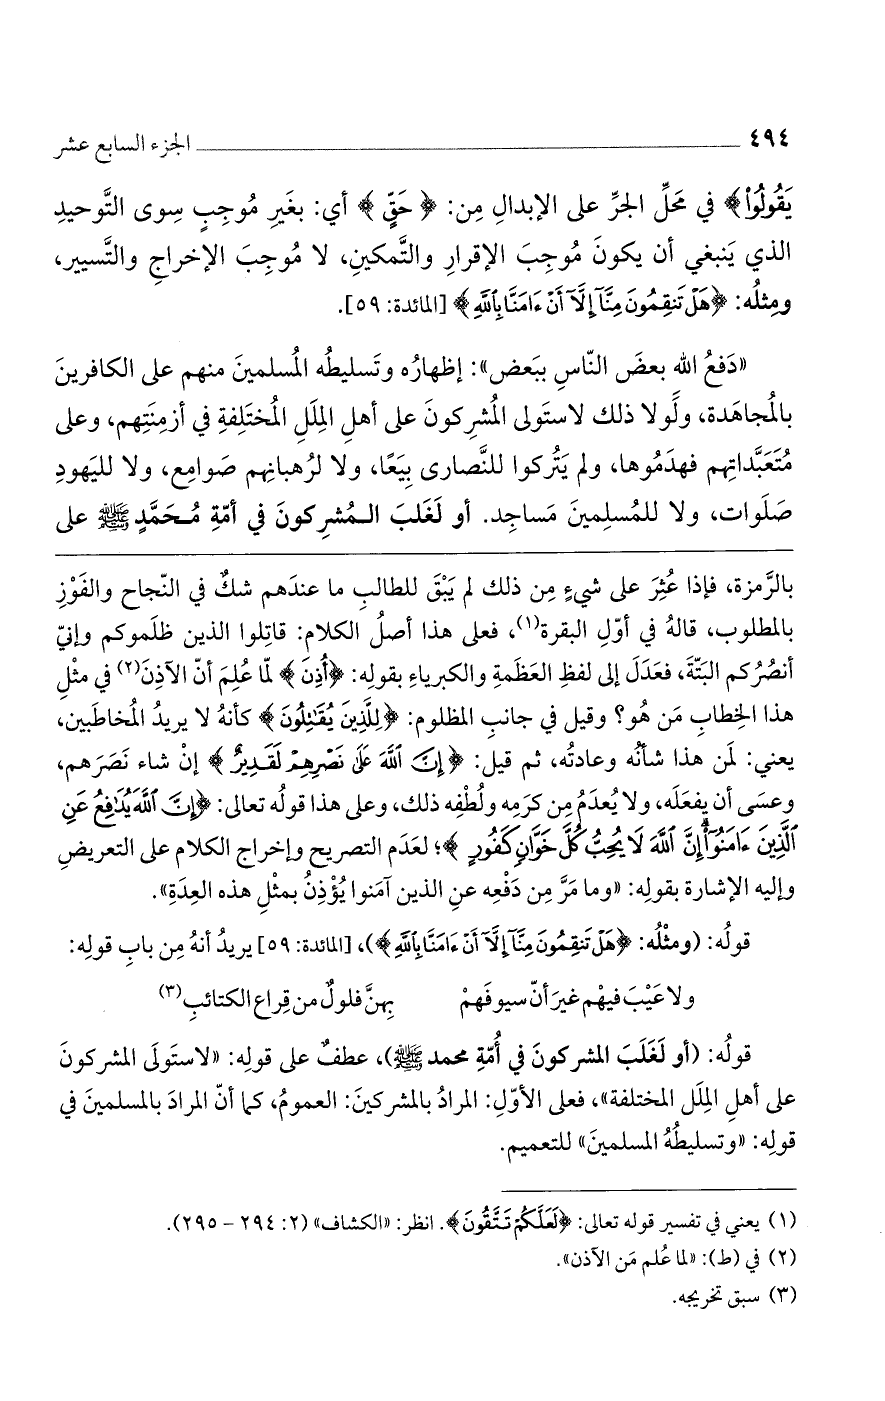 ٤٩٤ الجزء السابع عشر
يَقُولُوا۟﴾ في مَحَلِّ الجرِّ على الإبدالِ مِن: ﴿حَقٍّ﴾ أي: بغَيرِ مُوجِبٍ سِوى التَّوحيدِ
الذي يَنبغي أن يكونَ مُوجِبَ الإقرارِ والتَّمكينِ، لا مُوجِبَ الإخراجِ والتَّسيير،
ومِثلُه: ﴿هَلْ تَنقِمُونَ مِنَّآ إِلَّآ أَنْ ءَامَنَّا بِٱللَّهِ﴾ [المائدة: ٥٩].
«دَفعُ الله بعضَ النّاسِ ببَعض»: إظهارُه وتَسليطُه المُسلمينَ منهم على الكافرينَ
بالمُجاهَدة، ولَولا ذلك لاستَولى المُشركونَ على أهلِ المِلَلِ المُختَلِفةِ في أزمِنَتِهم، وعلى
مُتَعَبَّداتِهم فهدَمُوها، ولم يَتُركوا للنَّصارى بِيَعًا، ولا لرُهبانِهم صَوامِع، ولا لليَهودِ
صَلَوات، ولا للمُسلِمينَ مَساجِد. أو لَغَلبَ المُشركونَ في أمّةِ مُحَمَّدٍ ﷺ على
بالرَّمزة، فإذا عُثِرَ على شيءٍ مِن ذلك لم يَبْقَ للطالبِ ما عندَهم شكٌ في النّجاح والفَوْزِ
بالمطلوب، قالهُ في أوّلِ البقرة(١)، فعلى هذا أصلُ الكلام: قاتِلوا الذين ظلَموكم وإنيّ
أنصُرُكم البَتّةَ، فعَدَلَ إلى لفظِ العَظَمةِ والكبرياءِ بقولِه: ﴿أُذِنَ﴾ لمّا عُلِمَ أنّ الآذِنَ(٢) في مثْلِ
هذا الخِطابِ مَن هُو؟ وقيل في جانبِ المظلوم: ﴿لِلَّذِينَ يُقَٰتَلُونَ﴾ كأنهُ لا يريدُ المُخاطَبين،
يعني: لمَن هذا شأنُه وعادتُه، ثم قيل: ﴿إِنَّ ٱللَّهَ عَلَىٰ نَصْرِهِمْ لَقَدِيرٌ﴾ إنْ شاء نَصَرَهم،
وعسَى أن يفعَلَه، ولا يُعدَمُ مِن كرَمِه ولُطفِه ذلك، وعلى هذا قولُه تعالى: ﴿إِنَّ ٱللَّهَ يُدَٰفِعُ عَنِ
ٱلَّذِينَ ءَامَنُوٓا۟ إِنَّ ٱللَّهَ لَا يُحِبُّ كُلَّ خَوَّانٍ كَفُورٍ﴾؛ لعدَم التصريح وإخراج الكلام على التعريضِ
وإليه الإشارة بقولِه: «وما مَرَّ مِن دَفْعِه عنِ الذين آمَنوا يُؤْذِنُ بمثْلِ هذه العِدَةِ».
قولُه: (ومثْلُه: ﴿هَلْ تَنقِمُونَ مِنَّآ إِلَّآ أَنْ ءَامَنَّا بِٱللَّهِ﴾)، [المائدة: ٥٩] يريدُ أنهُ مِن بابِ قولِه:
ولا عَيْبَ فيهْم غيرَ أنّ سيوفَهمْ بهنَّ فلولٌ من قِراع الكتائبِ(٣)
قولُه: (أو لَغَلَبَ المشركونَ في أُمّةِ محمد ﷺ)، عطفٌ على قولِه: «لاستَولَى المشركونَ
على أهلِ المِلَلِ المختلفة»، فعلى الأوّلِ: المرادُ بالمشركينَ: العمومُ، كما أنّ المرادَ بالمسلمينَ في
قولِه: «وتسليطُهُ المسلمينَ» للتعميم.
(١) يعني في تفسير قوله تعالى: ﴿لَعَلَّكُمْ تَتَّقُونَ﴾. انظر: «الكشاف» (٢: ٢٩٤ – ٢٩٥).
(٢) في (ط): «لما عُلم مَن الآذن».
(٣) سبق تخريجه.